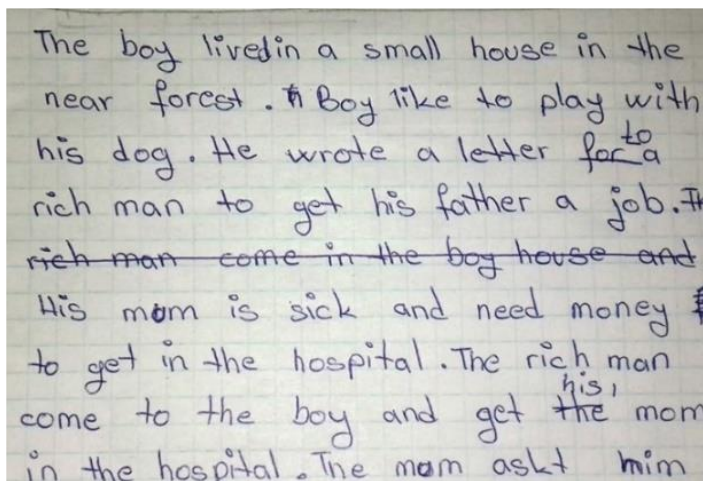 The boy lived in a small house in the
near forest. Boy like to play with
his dog. He wrote a letter for to a
rich man to get his father a job. Th
rich man come in the boy house and
His mom is sick and need money
to get in the hospital. The rich man
come to the boy and get the his, mom
in the hospital. The mam askt him